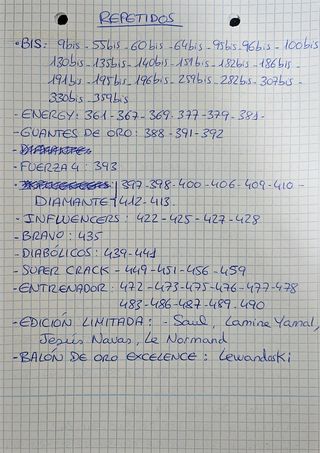 REPETIDOS
• BIS: 9bis - 55bis - 60bis - 64bis - 95bis - 96bis - 100bis
130bis - 135bis - 140bis - 151bis - 182bis - 186bis -
191bis - 195bis - 196bis - 259bis - 282bis - 307bis -
330bis - 359bis
- ENERGY: 361 - 367 - 369 - 377 - 379 - 381 -
- GUANTES DE ORO: 388 - 391 - 392
- DIAMANTE
- FUERZA 4: 393
- 397 - 398 - 400 - 406 - 409 - 410 -
DIAMANTE 412 - 413.
- INFLUENCERS: 422 - 425 - 427 - 428
- BRAVO: 435
- DIABÓLICOS: 439 - 441
- SUPER CRACK - 449 - 451 - 456 - 459
- ENTRENADOR: 472 - 473 - 475 - 476 - 477 - 478
483 - 486 - 487 - 489 - 490
- EDICIÓN LIMITADA: - Saul, Lamine Yamal,
Jesús Navas, Le Normand
- BALÓN DE ORO EXCELENCE: Lewandoski